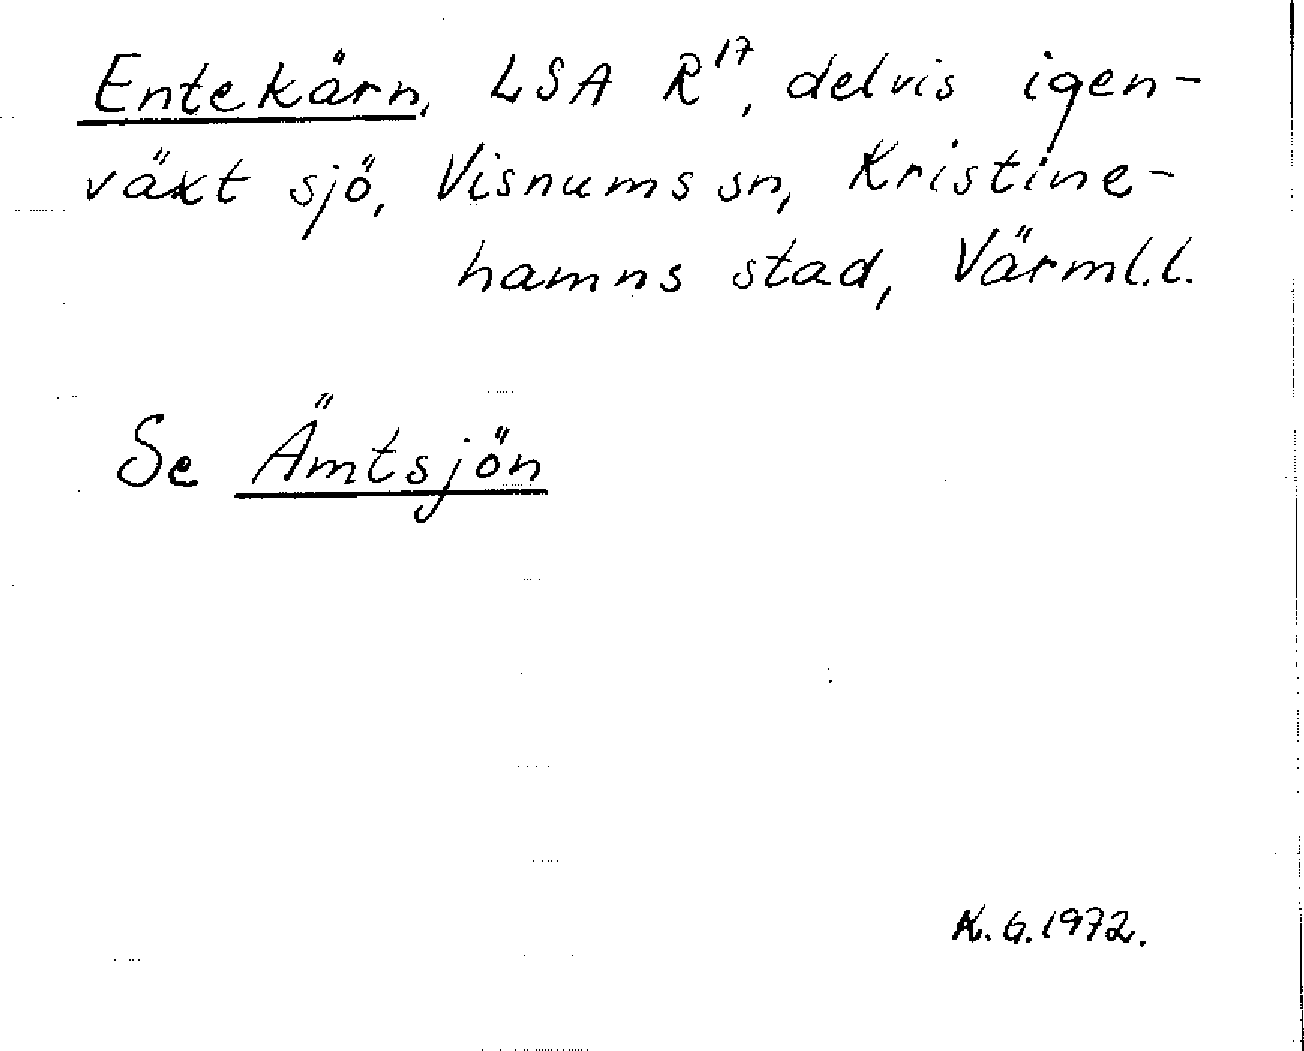 Entekärn, LSA R¹⁷, delvis igen-
växt sjö, Visnums sn, Kristine-
hamns stad, Värml.l.
Se Ämtsjön
K.G.1972.